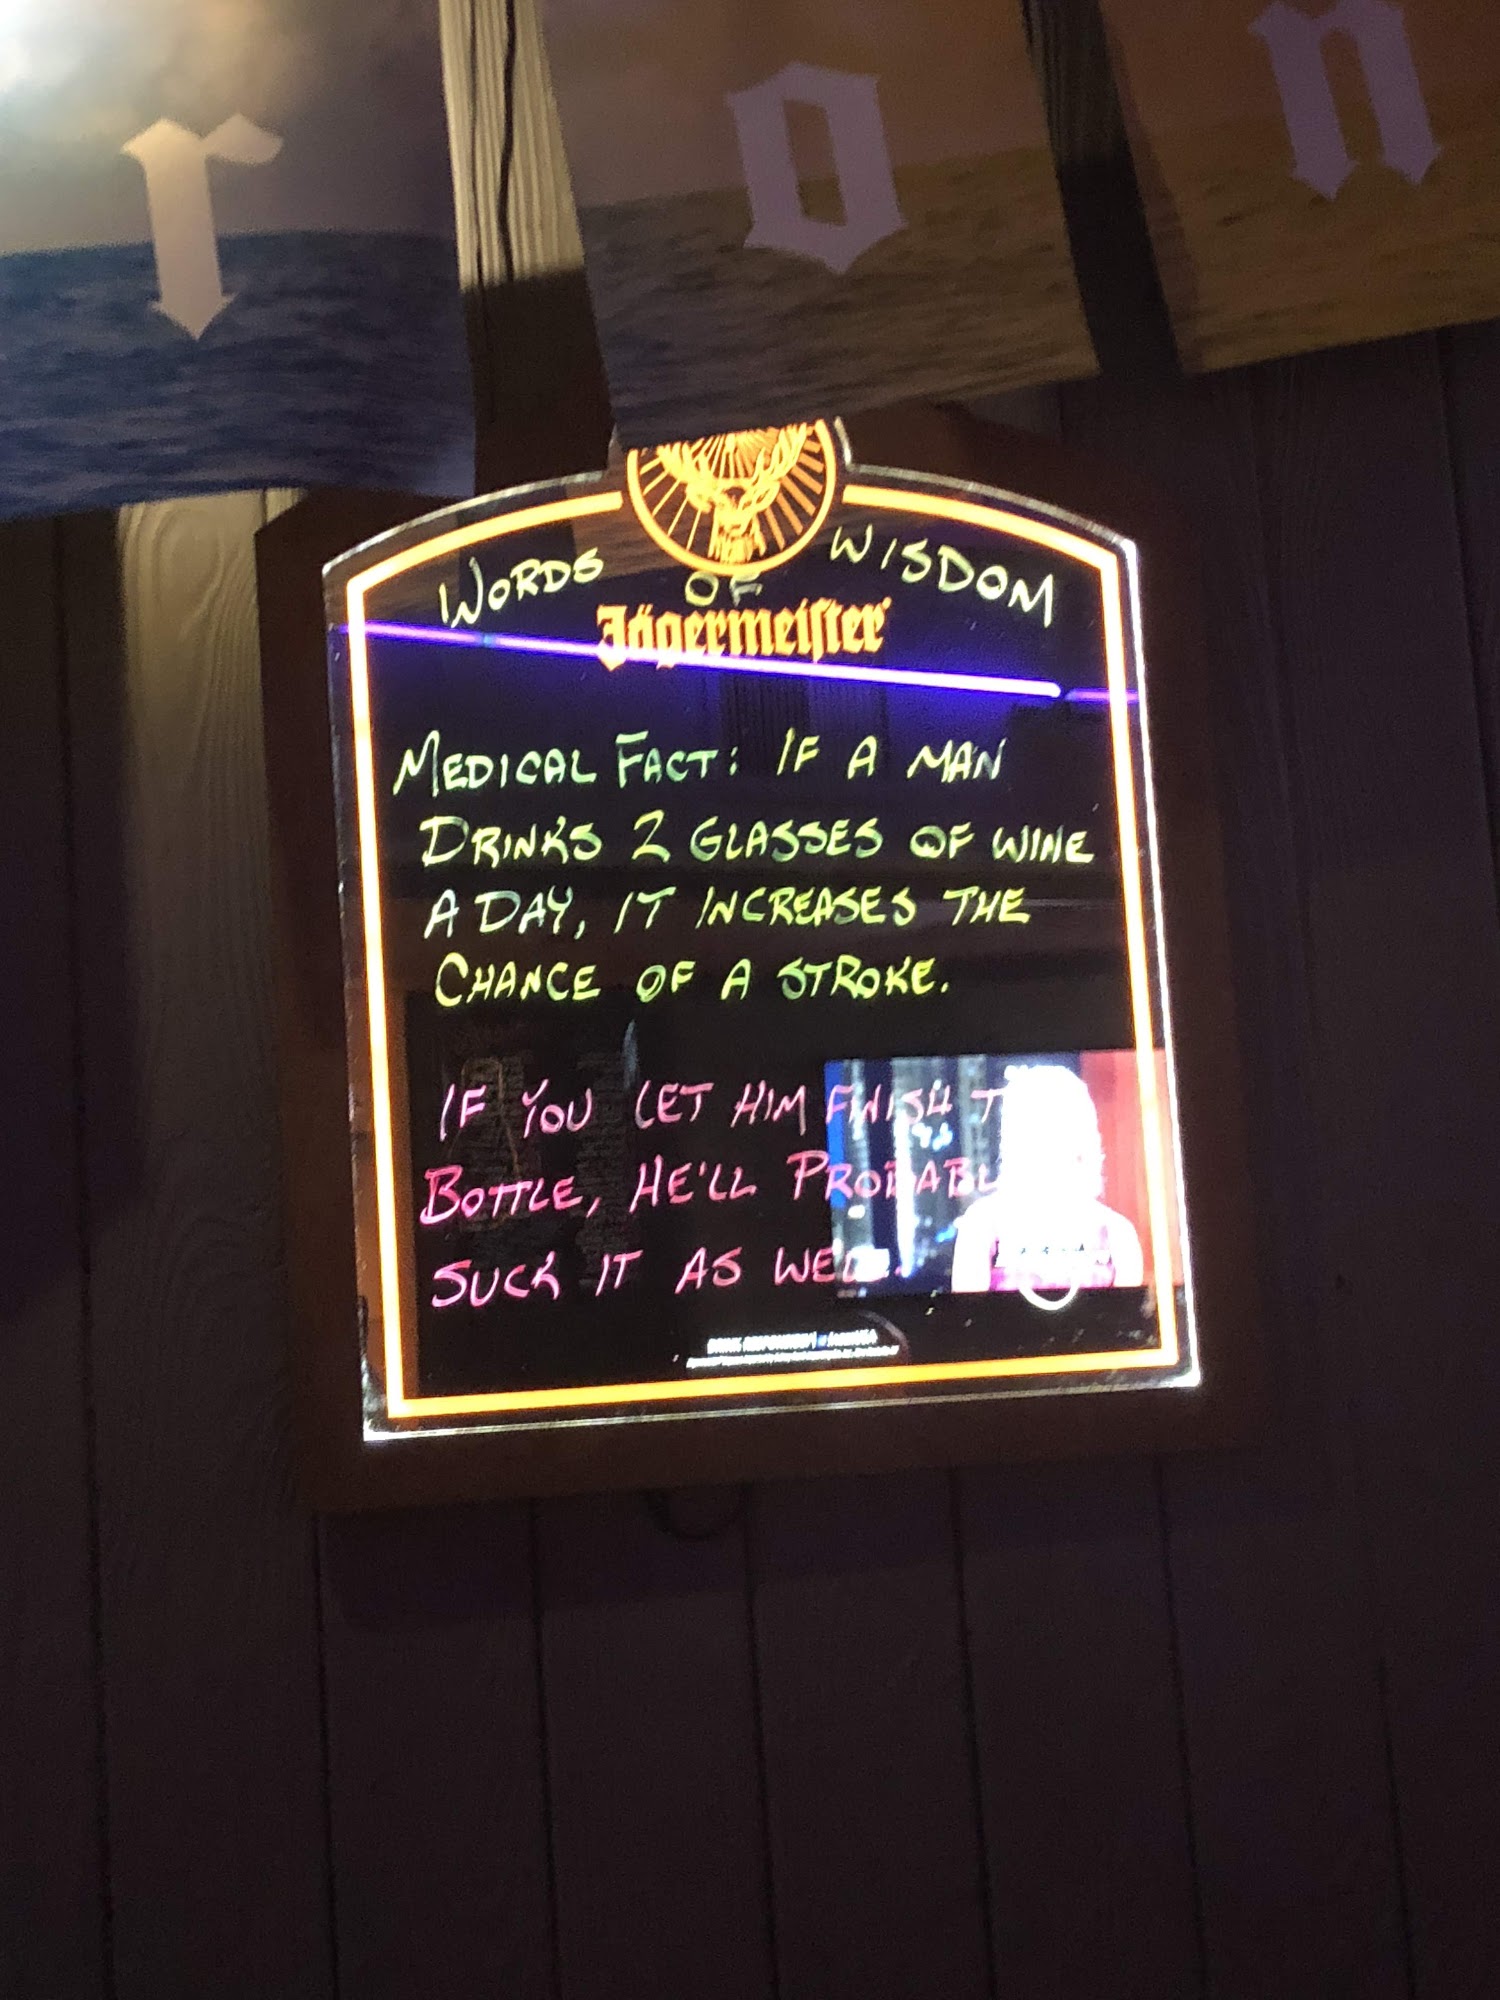 r o n
WORDS OF WISDOM
Jägermeister
MEDICAL FACT: IF A MAN
DRINKS 2 GLASSES OF WINE
A DAY, IT INCREASES THE
CHANCE OF A STROKE.
IF YOU LET HIM FINISH
BOTTLE, HE'LL PROBABL
SUCK IT AS WELL.